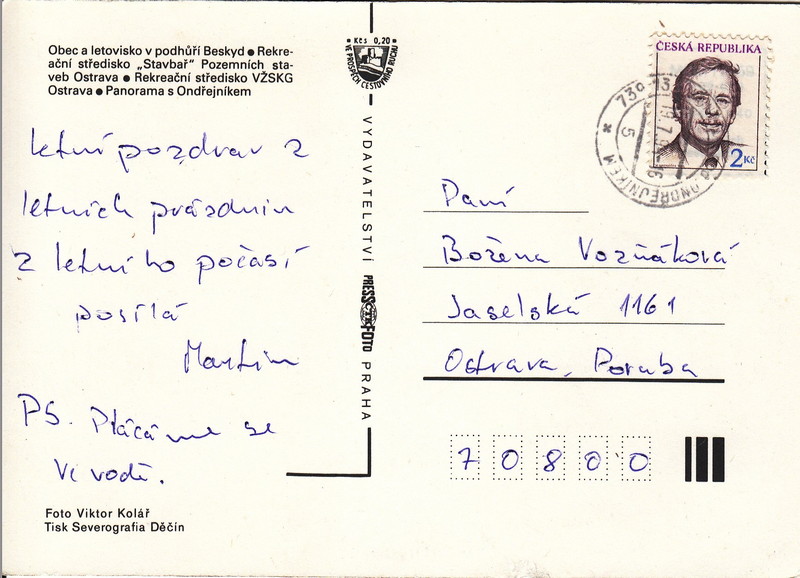 Obec a letovisko v podhůří Beskyd ● Rekre-
ační středisko „Stavbař“ Pozemních sta-
veb Ostrava ● Rekreační středisko VŽSKG
Ostrava ● Panorama s Ondřejníkem
letní pozdrav z
letních prázdnin
z letního počasí
posílá
Martin
PS. Plácáme se
ve vodě.
Foto Viktor Kolář
Tisk Severografia Děčín
Kčs 0,20
VE PROSPĚCH CESTOVNÍHO RUCHU
VYDAVATELSTVÍ PRESSFOTO PRAHA
ČESKÁ REPUBLIKA
2 Kč
ONDŘEJNÍKEM
Paní
Božena Vozňáková
Jaselská 1161
Ostrava, Poruba
70800